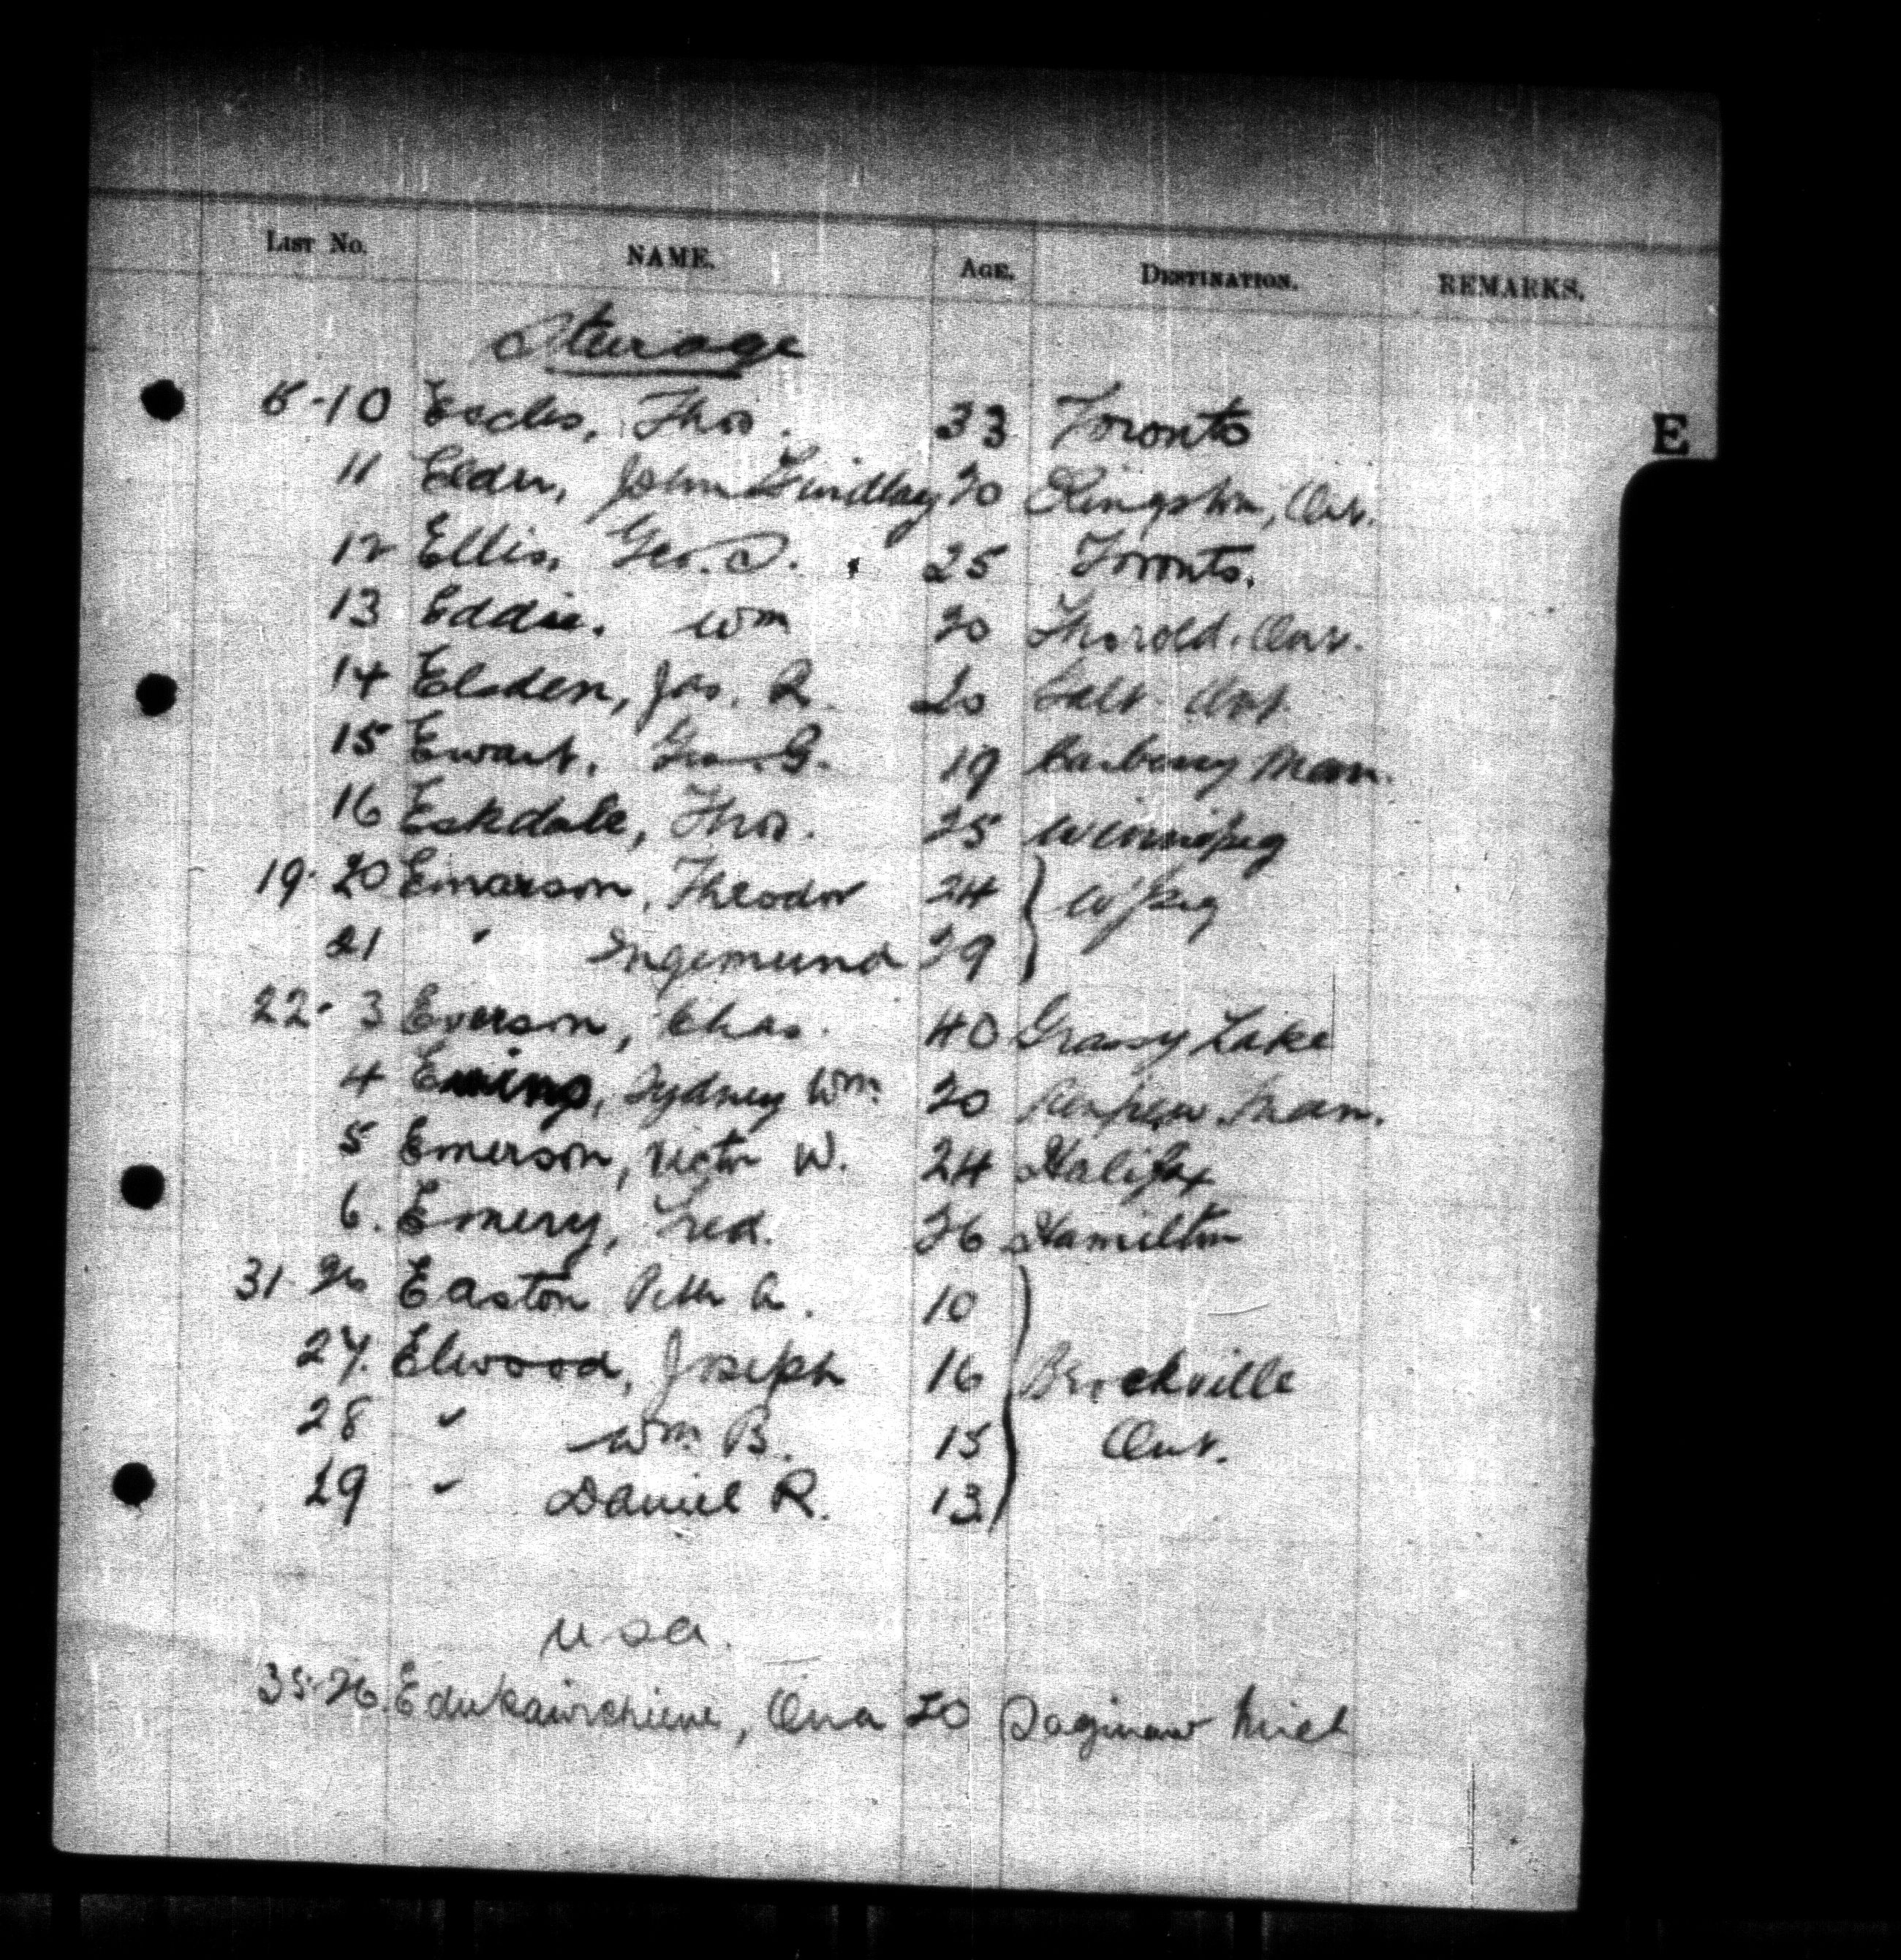 LIST NO. NAME. AGE. DESTINATION. REMARKS.
Steerage
E
5-10 Eccles, Thos. 33 Toronto
11 Elder, John Findlay 20 Kingston, Ont.
12 Ellis, Geo. S. 25 Toronto.
13 Eddie. Wm 20 Thorold. Ont.
14 Elsden, Jas. R. 20 Galt. Ont.
15 Ewart, Geo. G. 19 Carberry Man.
16 Eskdale, Thos. 25 Winnipeg
19-20 Einarson, Theodor 24 W'peg
21 " Ingemund 29
22-3 Everson, Chas. 40 Grassy Lake
4 Sydney Wm. 20 Man.
5 Emerson, Victor W. 24 Halifax
6. Emery, Fred. 26 Hamilton
31-26 Easton Peter A. 10
27. Elwood, Joseph 16 Brockville
28 " Wm B. 15 Ont.
29 " Daniel R. 13
USA.
35-26. Ona 20 Saginaw Mich